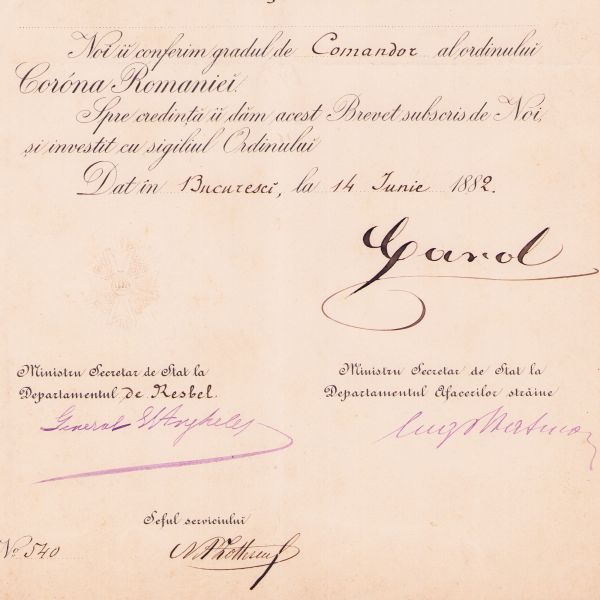 Noi ii conferim gradul de Comandor al ordinului
Coróna Romaniei.
Spre credință ii dăm acest Brevet subscris de Noi,
și investit cu sigiliul Ordinului
Dat în Bucuresci, la 14 Iunie 1882.
Carol
Ministru Secretar de Stat la
Departamentul de Resbel.
Ministru Secretar de Stat la
Departamentul Afacerilor străine
General
Șeful serviciului
No. 540